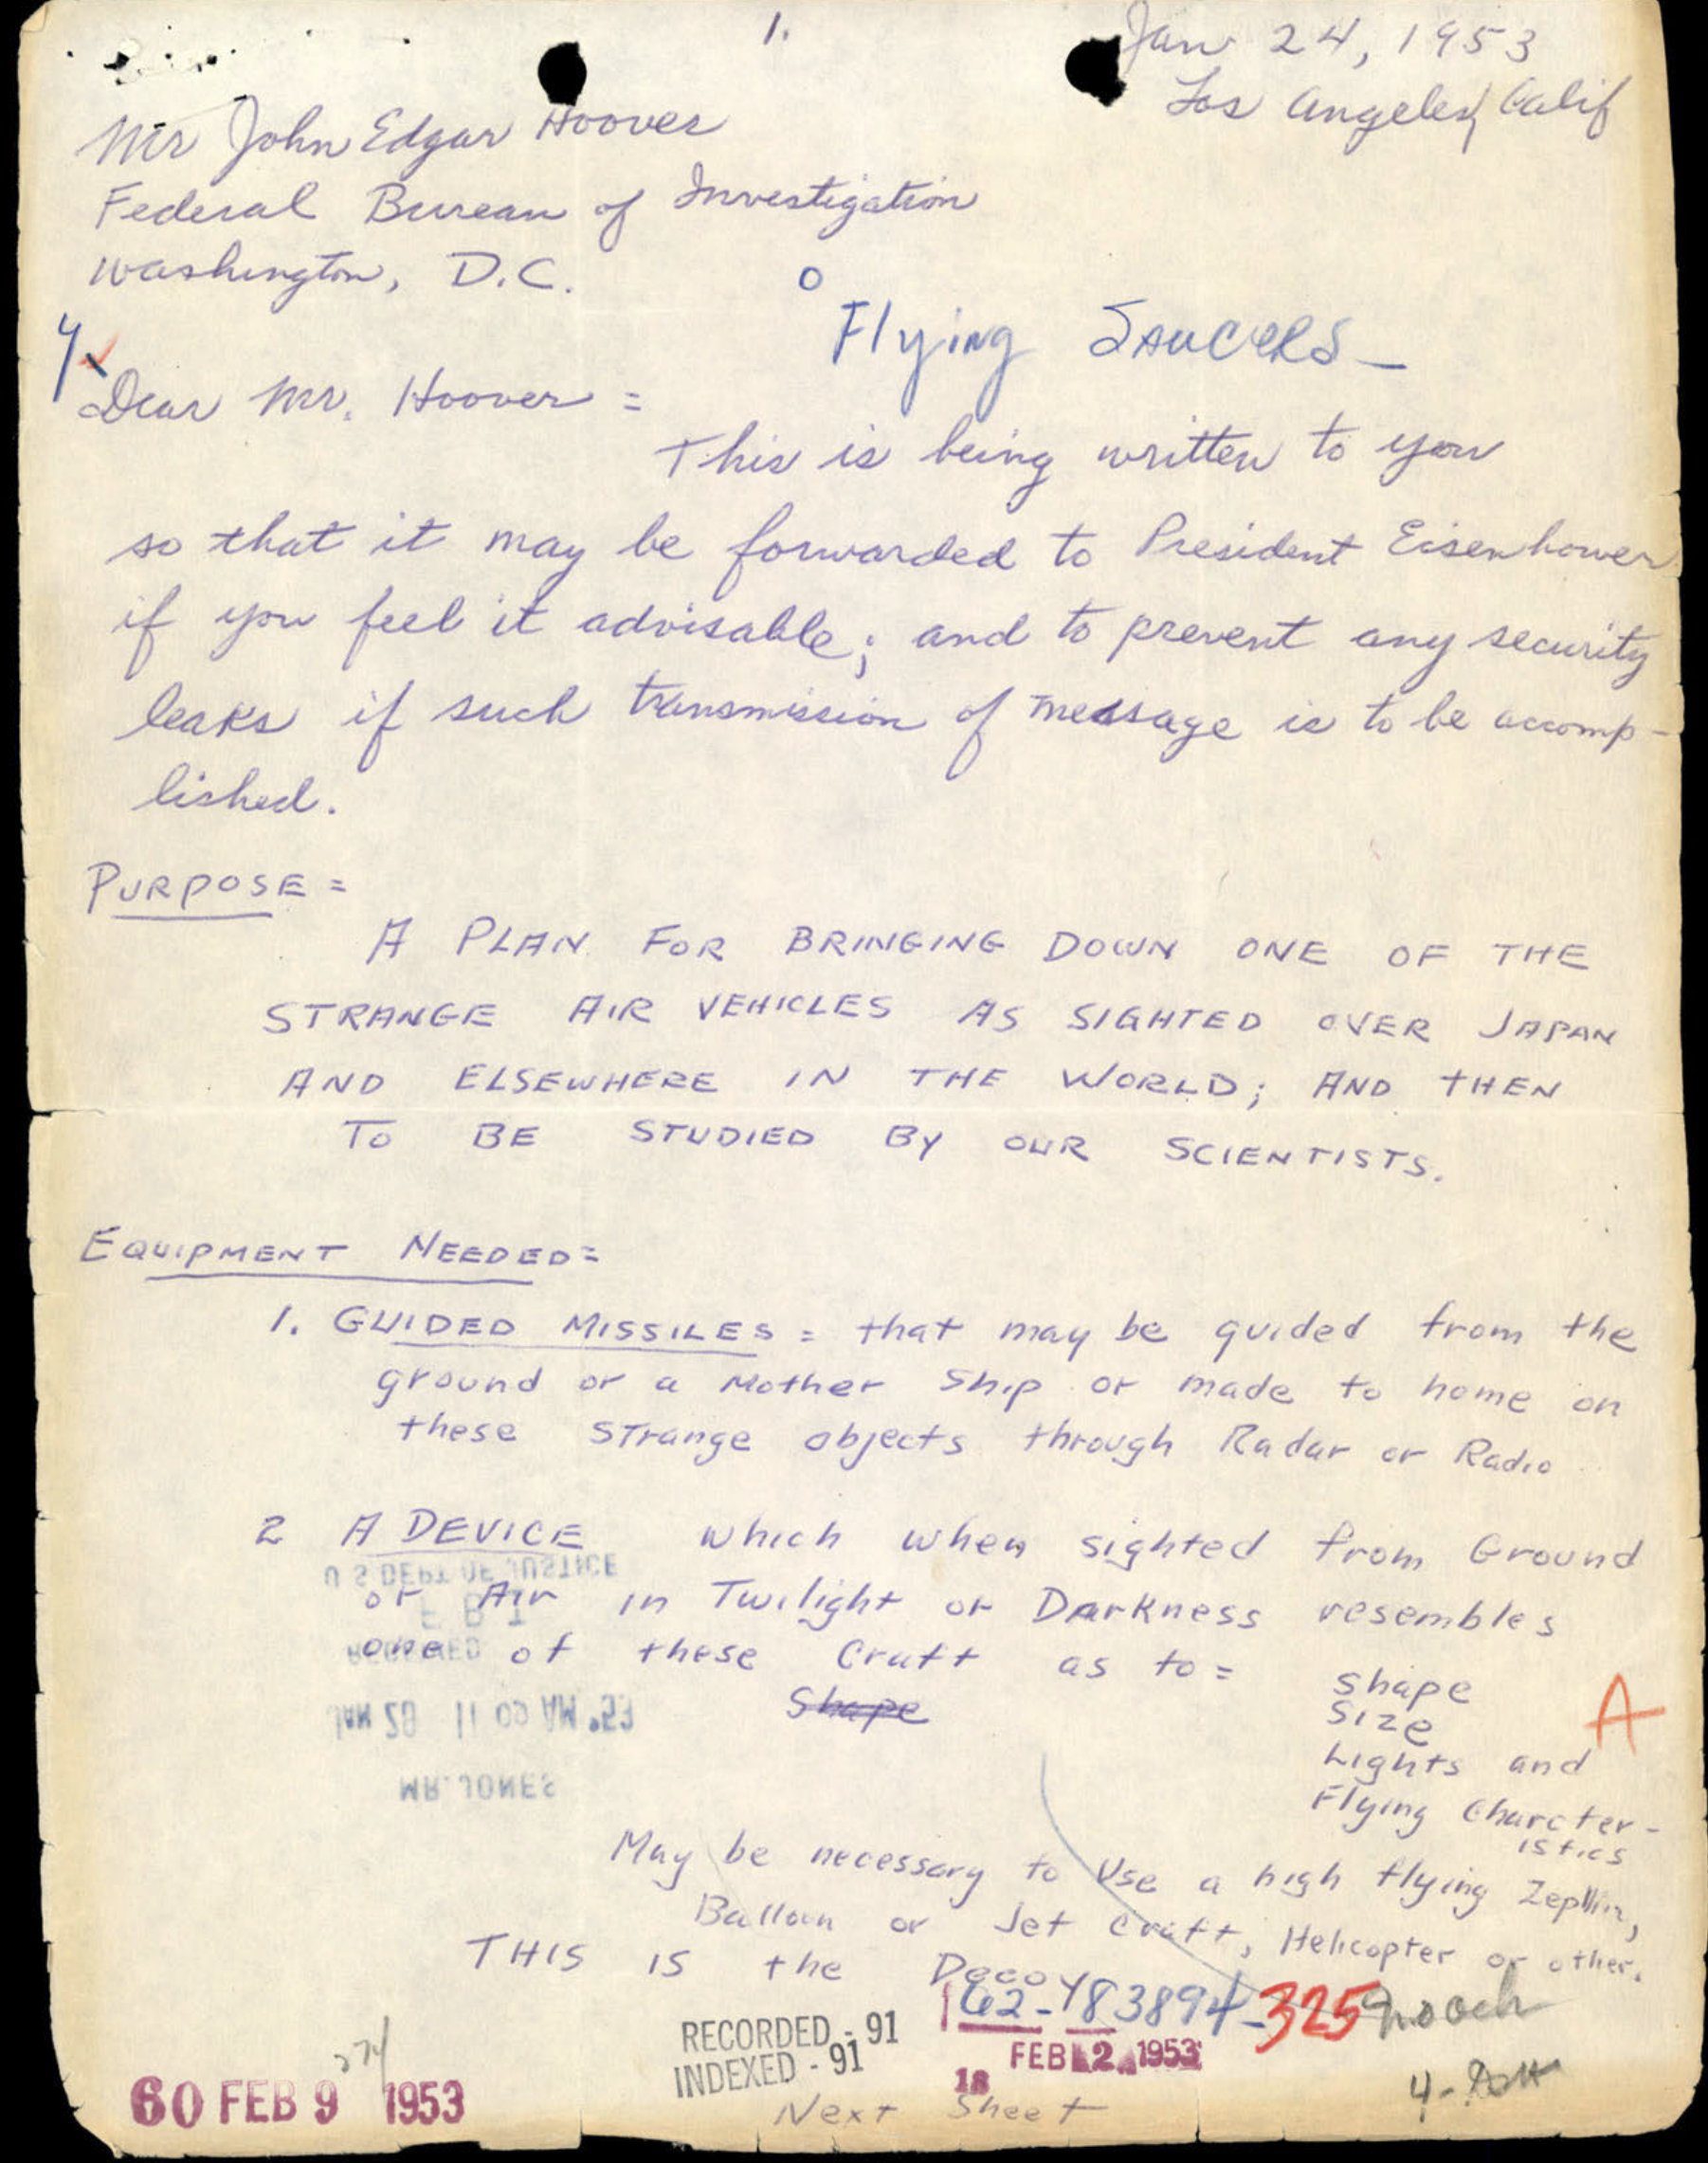 1.
Jan 24, 1953
Los Angeles, Calif
Mr John Edgar Hoover
Federal Bureau of Investigation
Washington, D.C.
Flying Saucers
Dear Mr. Hoover =
This is being written to you
so that it may be forwarded to President Eisenhower
if you feel it advisable; and to prevent any security
leaks if such transmission of message is to be accomp-
lished.
PURPOSE =
A PLAN FOR BRINGING DOWN ONE OF THE
STRANGE AIR VEHICLES AS SIGHTED OVER JAPAN
AND ELSEWHERE IN THE WORLD; AND THEN
TO BE STUDIED BY OUR SCIENTISTS.
EQUIPMENT NEEDED =
1. GUIDED MISSILES = that may be guided from the
ground or a Mother Ship or made to home on
these strange objects through Radar or Radio
2 A DEVICE which when sighted from Ground
U S DEPT OF JUSTICE
or Air in Twilight or Darkness resembles
F B I
one of these Craft as to =
RECEIVED
Shape
Shape
Size
Lights and
Flying Charcter-
istics
A
JAN 28 11 00 AM '53
MR. JONES
May be necessary to Use a high flying Zepllin,
Balloon or Jet Craft, Helicopter or other.
THIS IS the Decoy
62-83894-325
RECORDED - 91
INDEXED - 91
FEB 2 1953
18
60 FEB 9 1953
Next Sheet